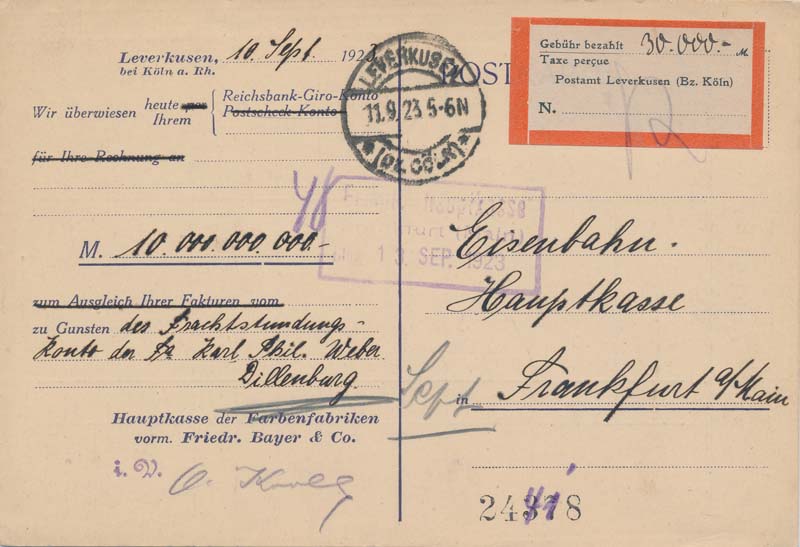 Leverkusen, 10. Sept. 1923
bei Köln a. Rh.
Wir überwiesen heute
Ihrem
Reichsbank-Giro-Konto
Postscheck-Konto
für Ihre Rechnung an
M. 10.000.000.000.-
zum Ausgleich Ihrer Fakturen vom
zu Gunsten des Frachtstundungs-
konto der Fa Karl Phil. Weber
Dillenburg.
Hauptkasse der Farbenfabriken
vorm. Friedr. Bayer & Co.
i. V.
LEVERKUSEN
11.9.23 5-6N
* (BZ. CÖLN) *
POST
Gebühr bezahlt 30.000.- M.
Taxe perçue
Postamt Leverkusen (Bz. Köln)
N.
Hauptkasse
13. SEP. 1923
Eisenbahn-
Hauptkasse
Sept
in Frankfurt a/Main